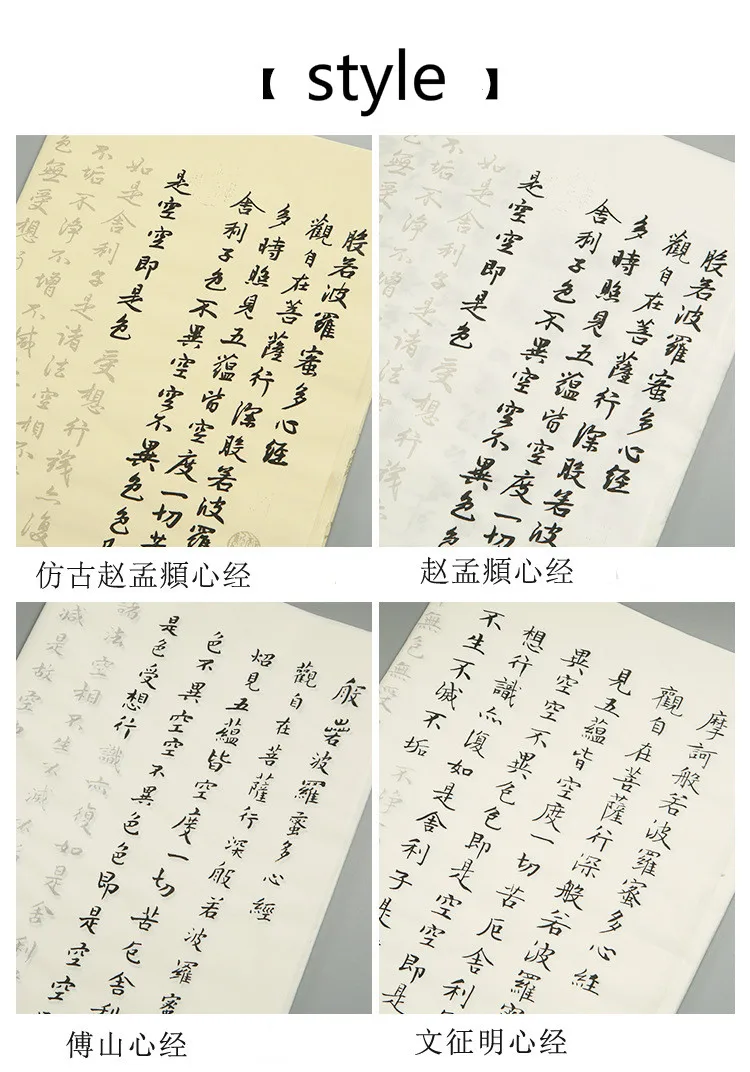 【 style 】
般若波羅蜜多心經
觀自在菩薩行深般若波羅
多時照見五蘊皆空度一切苦
舍利子色不異空空不異色色即
是空空即是色受想行識亦復
如是舍利子是諸法空相不
不垢不淨不增不減
色無受想
仿古赵孟頫心经
般若波羅蜜多心經
觀自在菩薩行深般若波
多時照見五蘊皆空度一切
舍利子色不異空空不異色色
是空空即是色受想行識亦復
如是舍利子是諸法空相
不垢不淨不增不減
色無受想
赵孟頫心经
般若波羅蜜多心經
觀自在菩薩行深般若波羅蜜
炤見五蘊皆空度一切苦厄舍利
色不異空空不異色色即是空空
是色受想行識亦復如是舍利
諸法空相不生不滅
減是故空中
傅山心经
摩訶般若波羅蜜多心經
觀自在菩薩行深般若波羅蜜
見五蘊皆空度一切苦厄舍利
異空空不異色色即是空空即是
想行識亦復如是舍利子是
不生不滅不垢不淨
無色無受
文征明心经